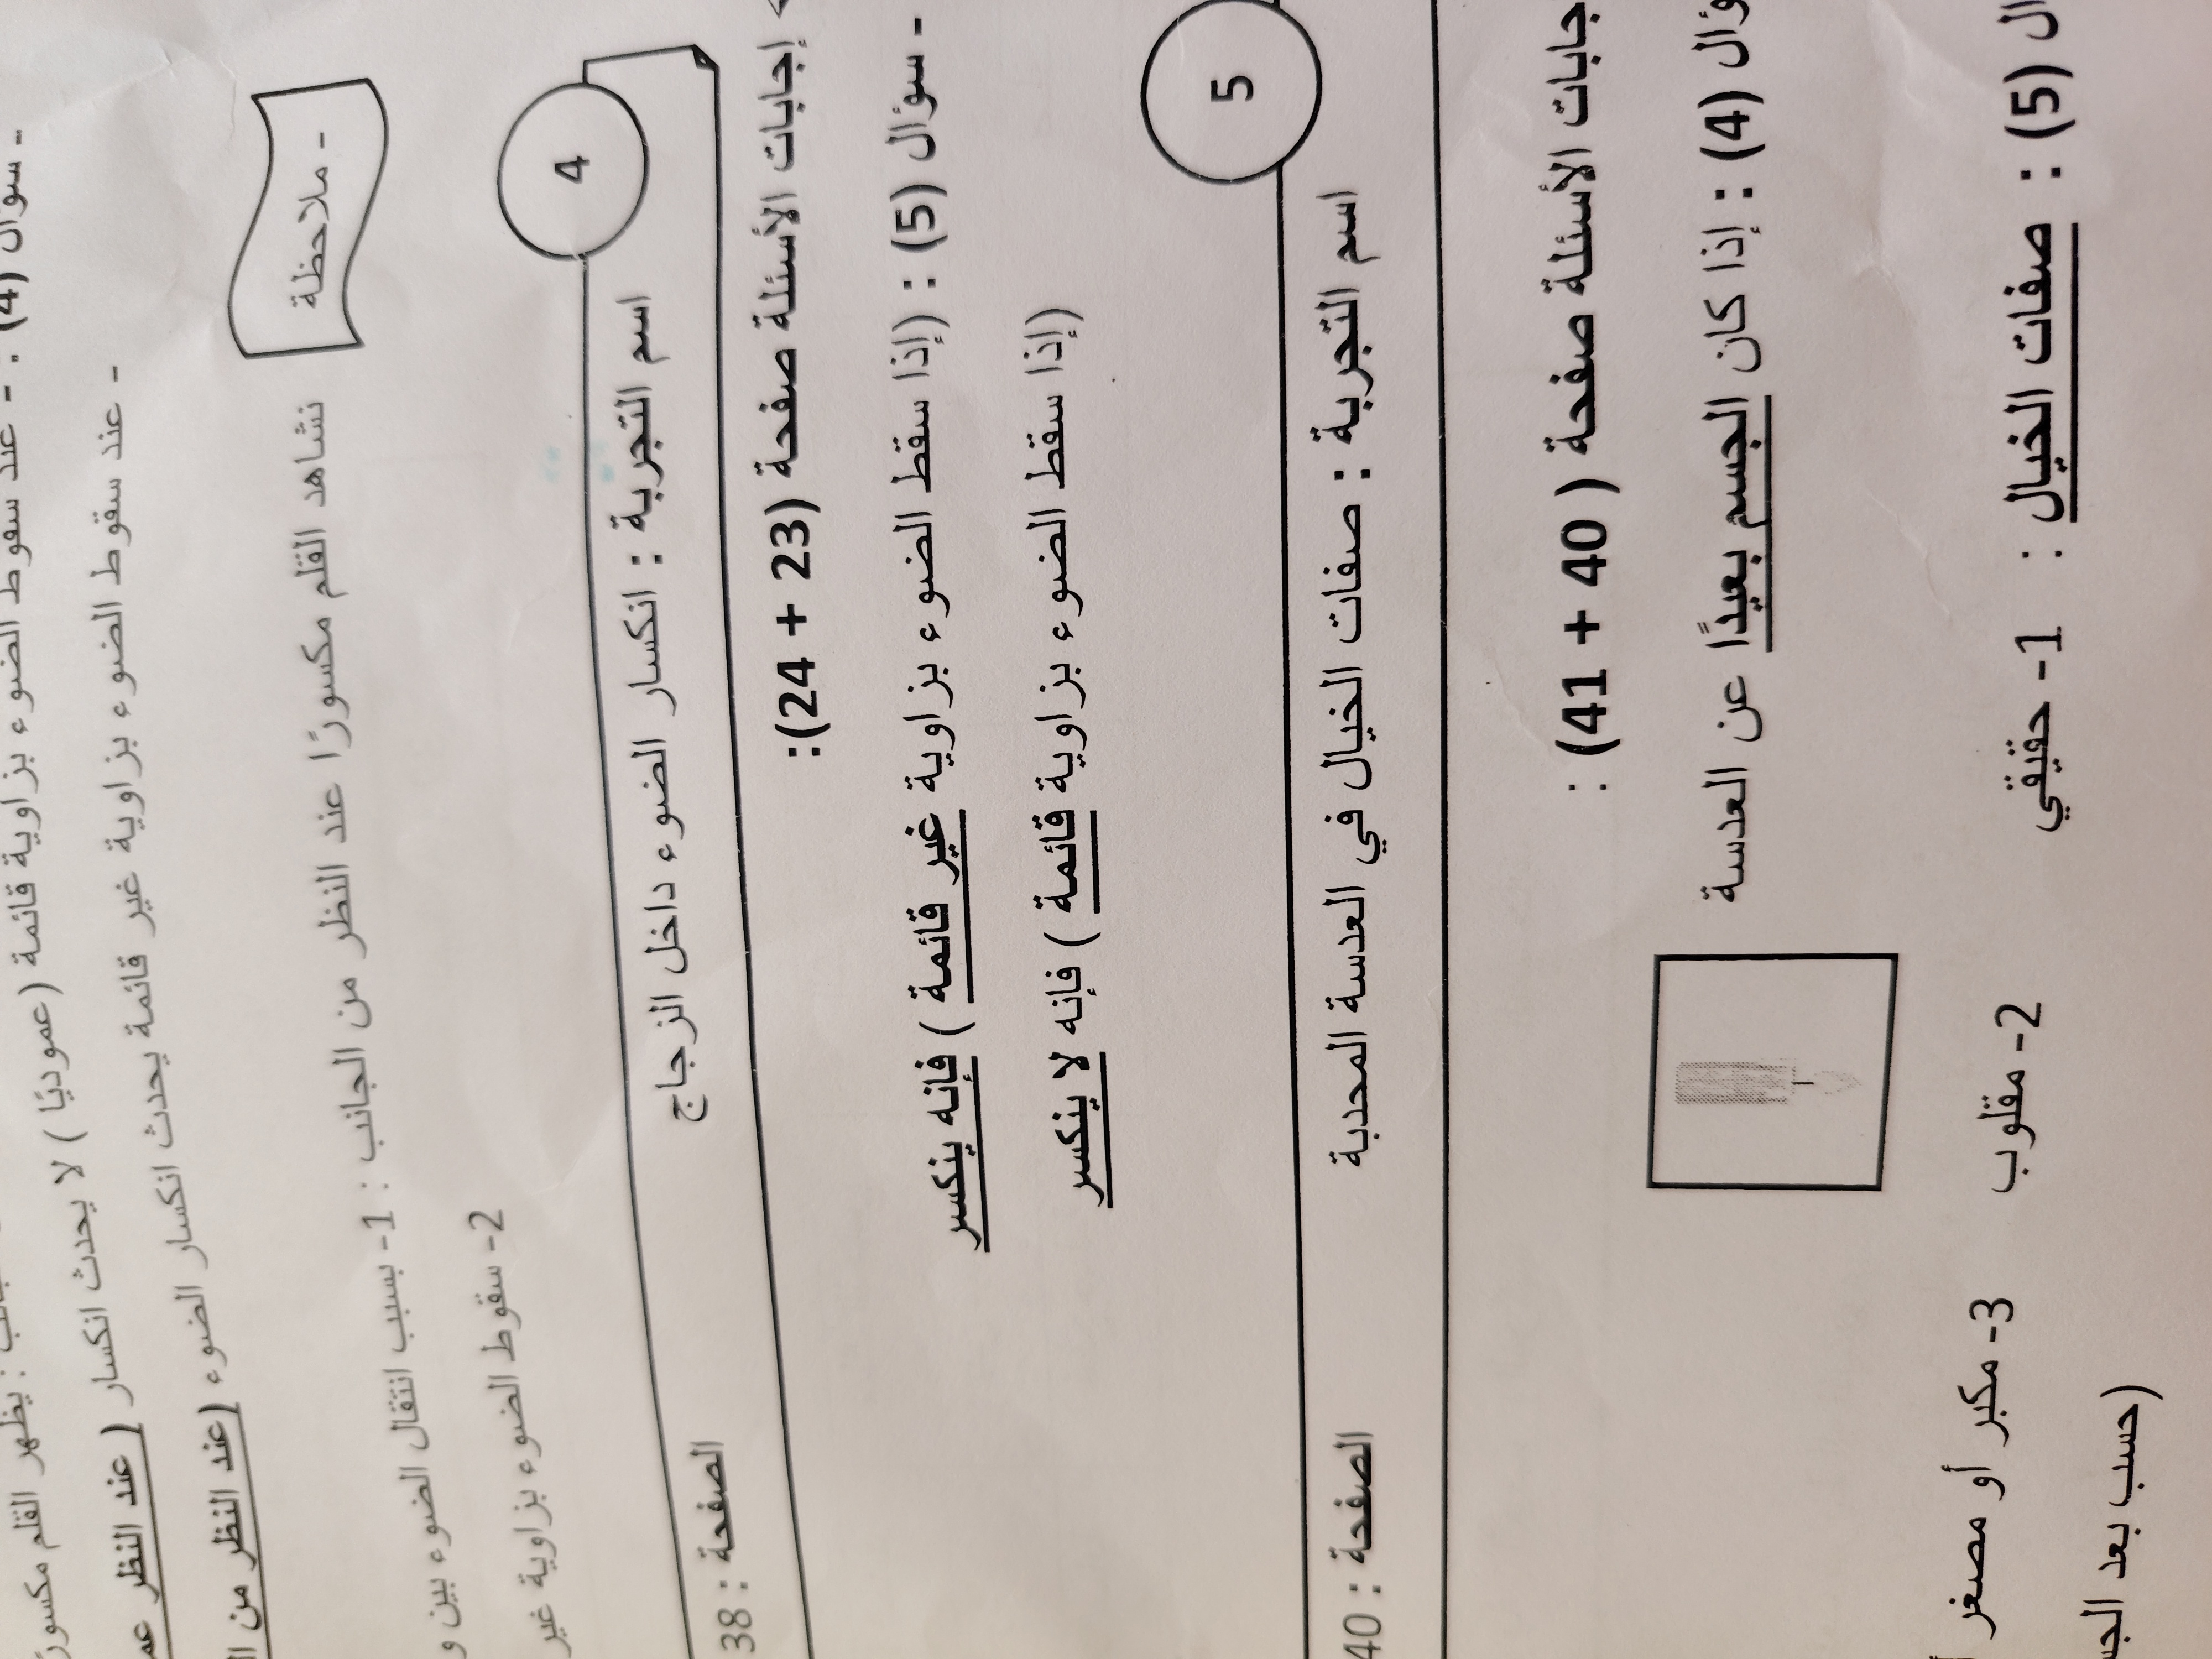 - سؤال (4) : - عند سقوط الضوء بزاوية قائمة (عموديًا ) لا يحدث انكسار ( عند النظر
- عند سقوط الضوء بزاوية غير قائمة يحدث انكسار الضوء (عند النظر من
- ملاحظة
نشاهد القلم مكسورًا عند النظر من الجانب : 1- بسبب انتقال الضوء بين
2- سقوط الضوء بزاوية غير
4
اسم التجربة : انكسار الضوء داخل الزجاج
الصفحة : 38
إجابات الأسئلة صفحة (23 + 24):
- سؤال (5) : (إذا سقط الضوء بزاوية غير قائمة ) فإنه ينكسر
(إذا سقط الضوء بزاوية قائمة ) فإنه لا ينكسر
5
اسم التجربة : صفات الخيال في العدسة المحدبة
الصفحة : 40
جابات الأسئلة صفحة ( 40 + 41) :
ؤال (4) : إذا كان الجسم بعيدًا عن العدسة
ال (5) : صفات الخيال : 1- حقيقي 2- مقلوب 3- مكبر أو مصغر
(حسب بعد